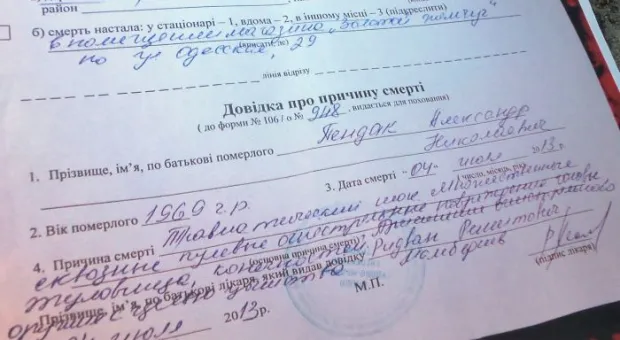 район
б) смерть настала: у стаціонарі – 1, вдома – 2, в іншому місці – 3 (підкреслити)
в помещении магазина "Золотой жемчуг"
по ул Одесская, 29
(вписати, де)
лінія відрізу
Довідка про причину смерті
( до форми № 106 / о № 948, видається для поховання)
1. Прізвище, ім'я, по батькові померлого Пендак Александр
Николаевич
3. Дата смерті "04" июля 2013 г.
(число, місяць, рік)
2. Вік померлого 1969 г.р.
4. Причина смерті Травматический шок Множественные
сквозные пулевые огнестрельные
(основна причина смерті)
туловища, конечностей
Прізвище, ім'я, по батькові лікаря, який видав довідку Ридван
М.П.
(підпис лікаря)
июля 2013р.